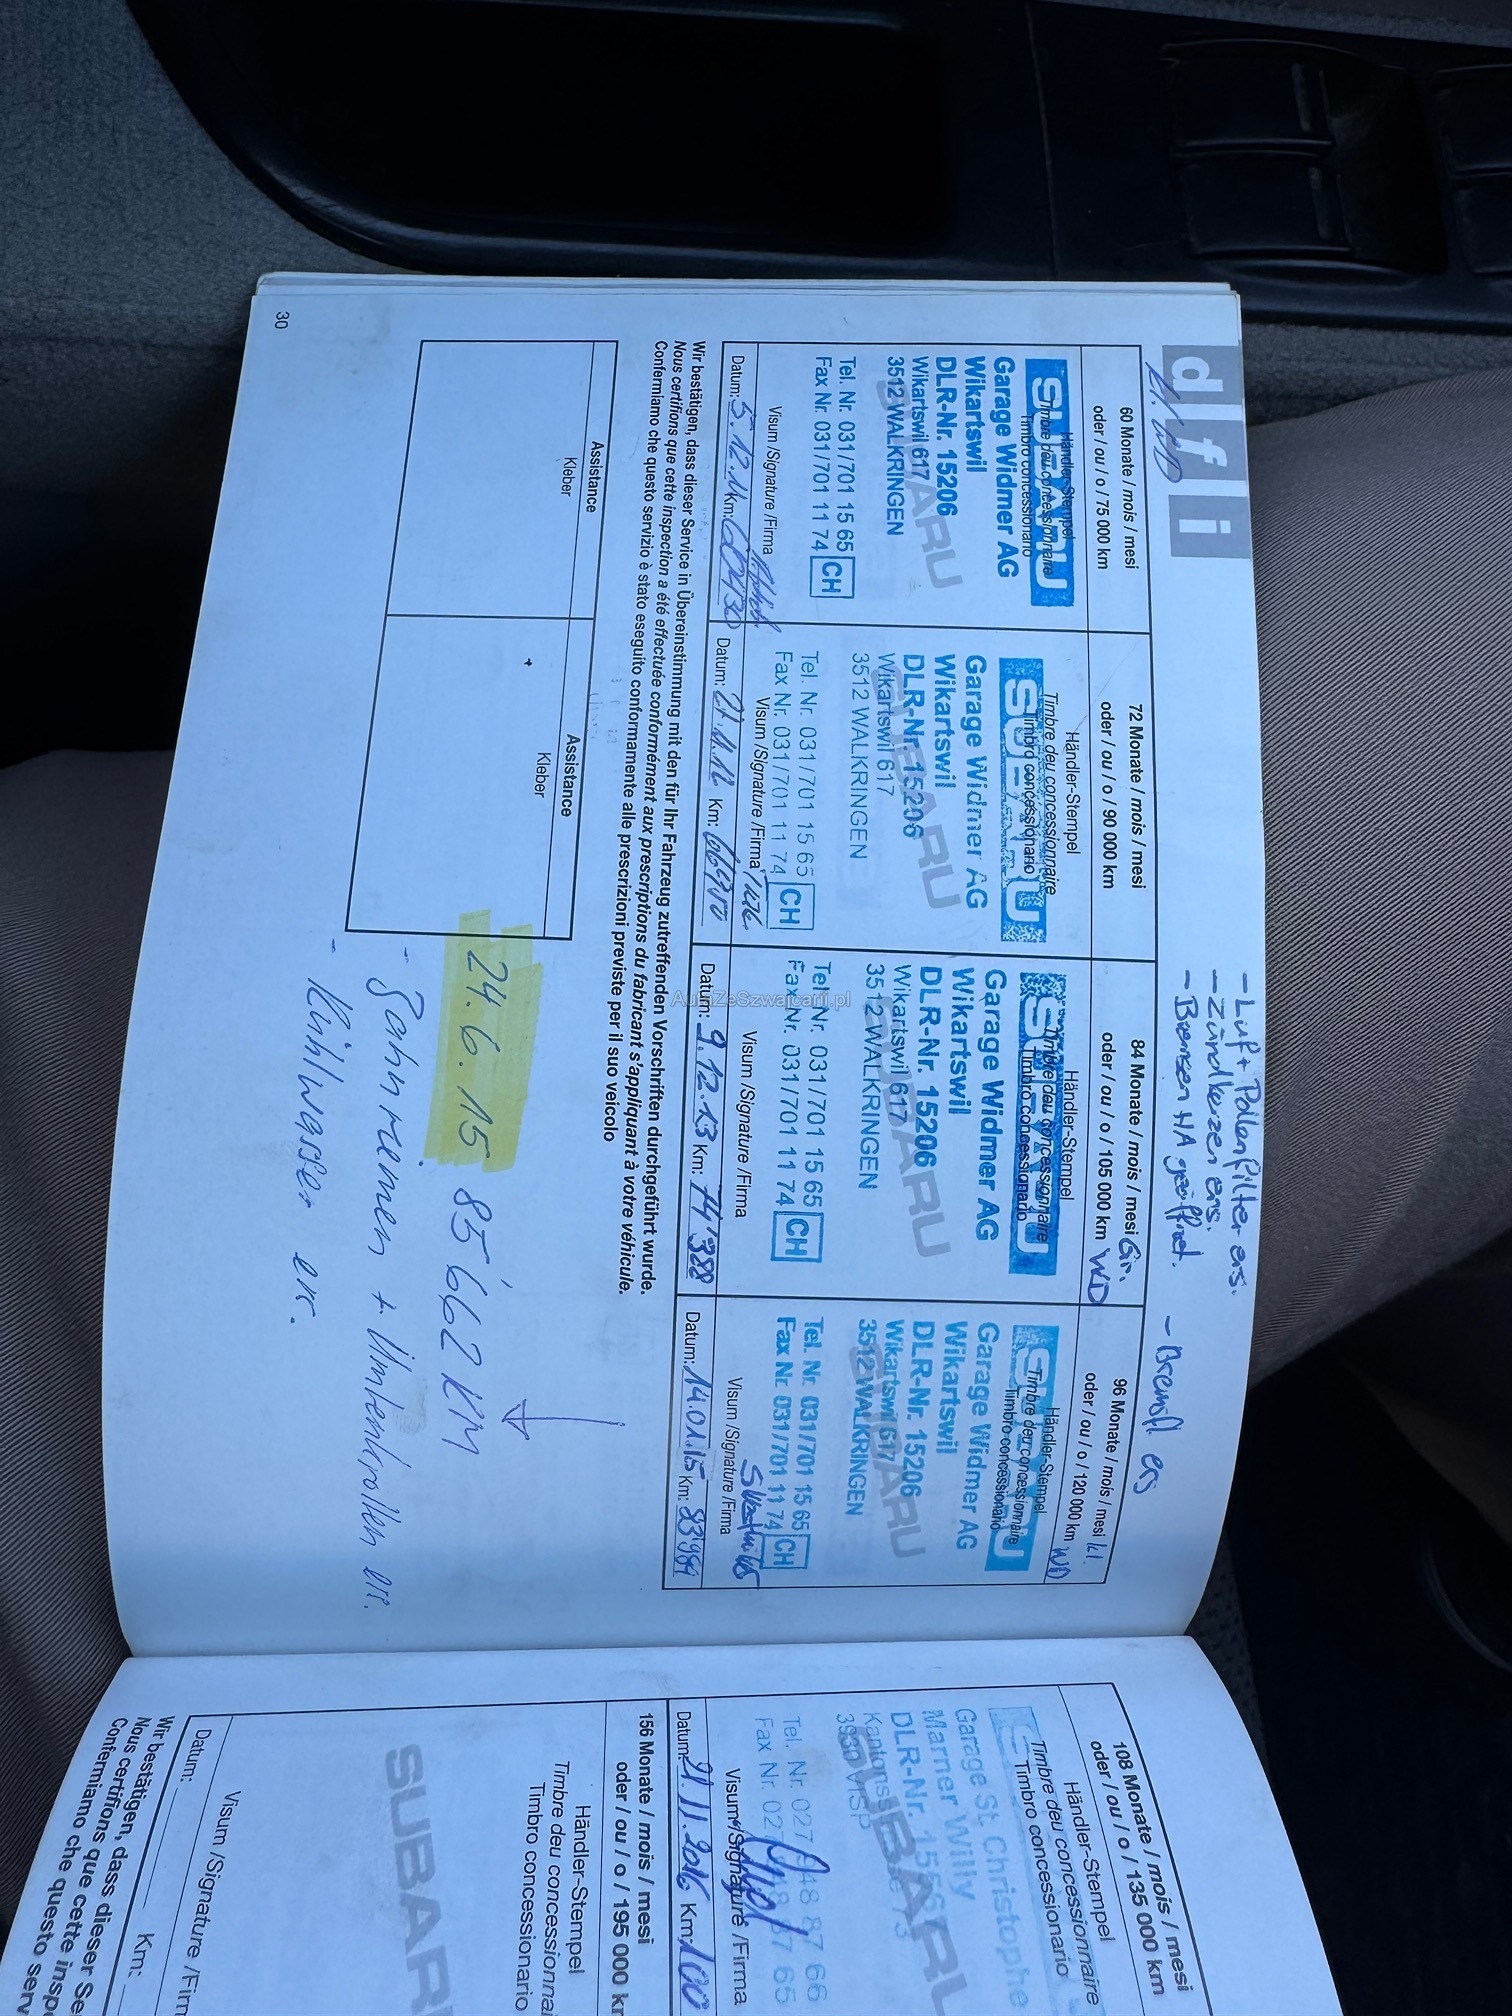 d f i
kl / WD
- Luft + Pollenfilter ers.
- Zündkerzen ers.
- Bremsen HA geöffnet.
- Bremsfl ers
60 Monate / mois / mesi
oder / ou / o / 75 000 km
Händler-Stempel
Timbre deu concessionnaire
Timbro concessionario
SUBARU
Garage Widmer AG
Wikartswil
DLR-Nr. 15206
Wikartswil 617
3512 WALKRINGEN
Tel. Nr. 031/701 15 65
Fax Nr. 031/701 11 74 CH
Visum /Signature /Firma
Datum: 5.12.11 Km:
72 Monate / mois / mesi
oder / ou / o / 90 000 km
Händler-Stempel
Timbre deu concessionnaire
Timbro concessionario
SUBARU
Garage Widmer AG
Wikartswil
DLR-Nr. 15206
Wikartswil 617
3512 WALKRINGEN
Tel. Nr. 031/701 15 65
Fax Nr. 031/701 11 74 CH
Visum /Signature /Firma
Datum: 21.11.12 Km:
84 Monate / mois / mesi Gr.
oder / ou / o / 105 000 km WD
Händler-Stempel
Timbre deu concessionnaire
Timbro concessionario
SUBARU
Garage Widmer AG
Wikartswil
DLR-Nr. 15206
Wikartswil 617
3512 WALKRINGEN
Tel. Nr. 031/701 15 65
Fax Nr. 031/701 11 74 CH
Visum /Signature /Firma
Datum: 9.12.13 Km: 74'388
96 Monate / mois / mesi kl.
oder / ou / o / 120 000 km WD
Händler-Stempel
Timbre deu concessionnaire
Timbro concessionario
SUBARU
Garage Widmer AG
Wikartswil
DLR-Nr. 15206
Wikartswil 617
3512 WALKRINGEN
Tel. Nr. 031/701 15 65
Fax Nr. 031/701 11 74 CH
Visum /Signature /Firma
Datum: 14.01.15 Km: 83'984
AutaZeSzwajcarii.pl
Wir bestätigen, dass dieser Service in Übereinstimmung mit den für Ihr Fahrzeug zutreffenden Vorschriften durchgeführt wurde.
Nous certifions que cette inspection a été effectuée conformément aux prescriptions du fabricant s'appliquant à votre véhicule.
Confermiamo che questo servizio è stato eseguito conformamente alle prescrizioni previste per il suo veicolo
Assistance
Kleber
Assistance
Kleber
24.6.15 85'662 KM
- Zahnriemen + Umlenkrollen err.
- Kühlwasser err.
30
108 Monate / mois / mesi
oder / ou / o / 135 000 km
Händler-Stempel
Timbre deu concessionnaire
Timbro concessionario
Garage St. Christophe
Marner Willy
DLR-Nr.
3930 VISP
SUBARU
Tel. Nr. 027 948 87 66
Fax Nr. 027 948 87 65
Visum /Signature /Firma
Datum: 21.11.2016 Km: 100
156 Monate / mois / mesi
oder / ou / o / 195 000 km
Händler-Stempel
Timbre deu concessionnai
Timbro concessionario
SUBAR
Visum /Signature /Firm
Datum: Km:
Wir bestätigen, dass dieser Se
Nous certifions que cette inspe
Confermiamo che questo serv